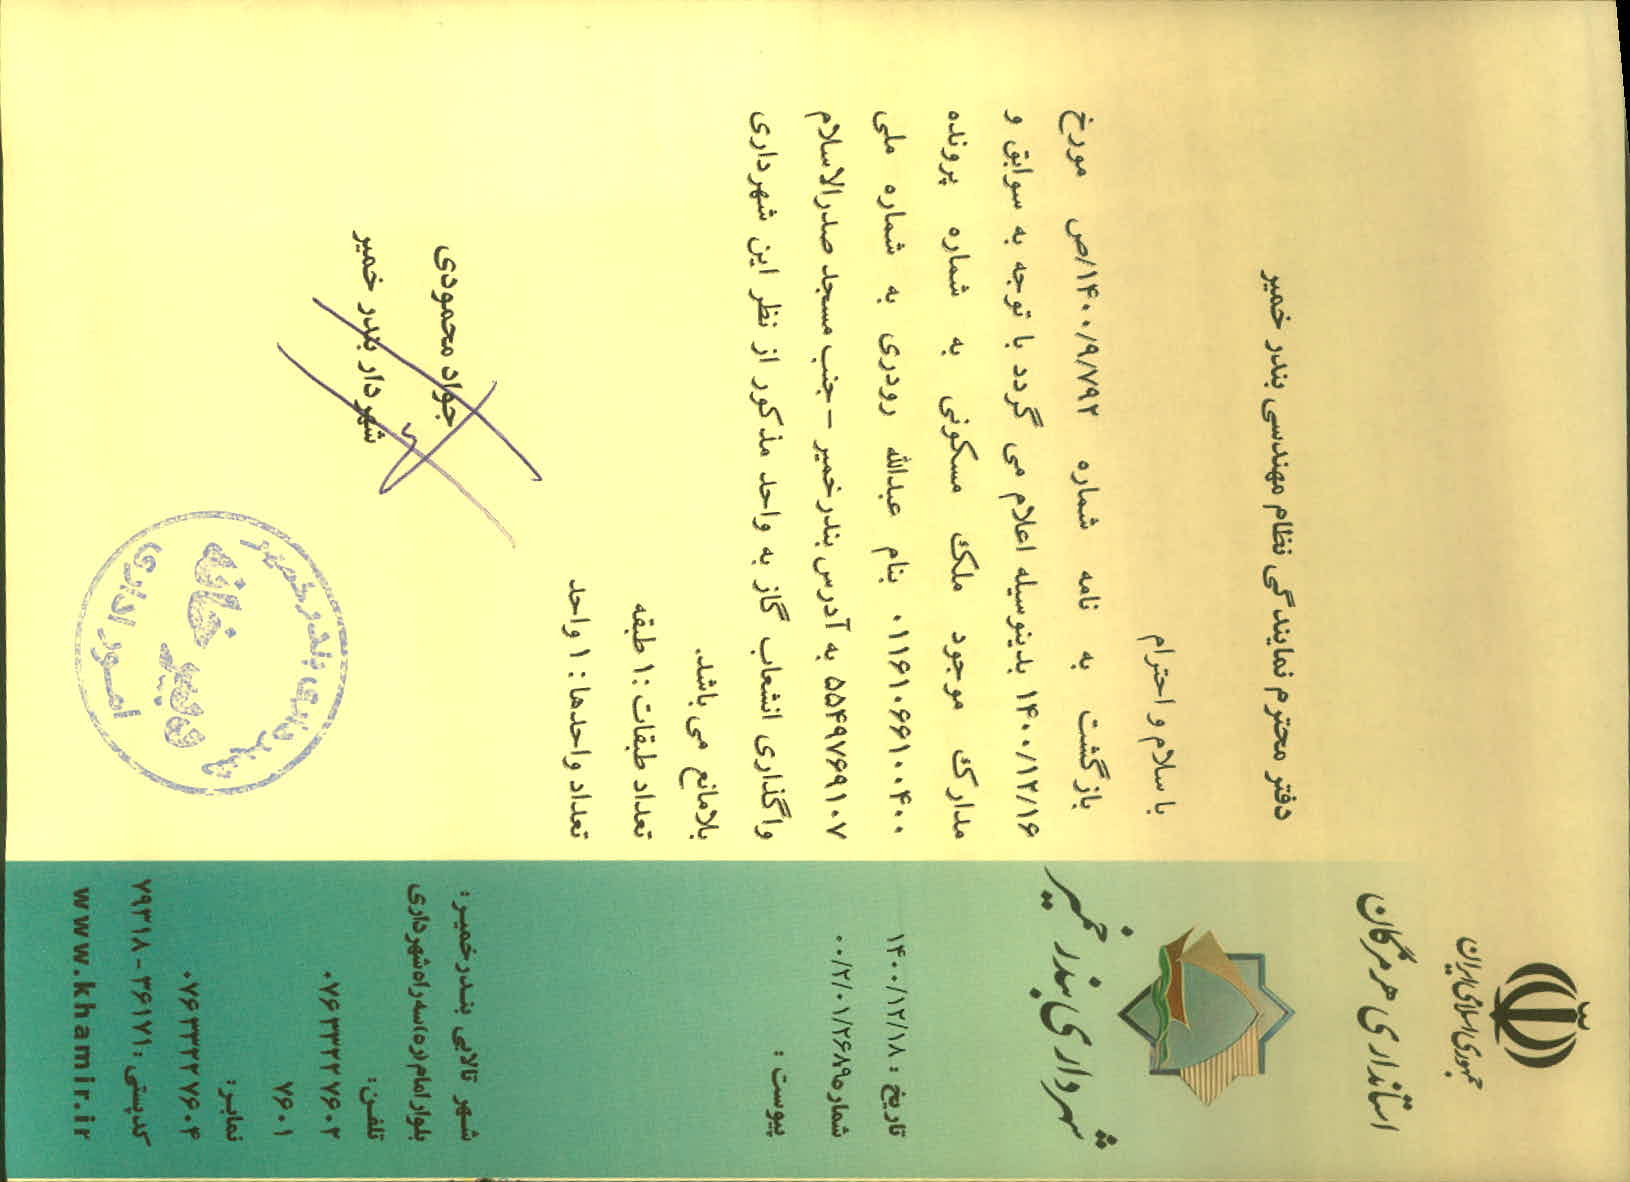 جمهوری اسلامی ایران
استانداری هرمزگان
شهرداری بندر خمیر
تاریخ : ۱۴۰۰/۱۲/۱۸
شماره۰۰/۲/۰۱/۲۶۸۹
پیوست :
دفتر محترم نمایندگی نظام مهندسی بندر خمیر
با سلام و احترام
بازگشت به نامه شماره ۱۴۰۰/۹/۷۹۲/ص مورخ
۱۴۰۰/۱۲/۱۶ بدینوسیله اعلام می گردد با توجه به سوابق و
مدارک موجود ملک مسکونی به شماره پرونده
۰۱۱۶۱۰۶۶۱۰۰۴۰۰ بنام عبدالله رودری به شماره ملی
۵۵۴۹۷۶۹۱۰۷ به آدرس بندرخمیر – جنب مسجد صدرالاسلام
واگذاری انشعاب گاز به واحد مذکور از نظر این شهرداری
بلامانع می باشد.
تعداد طبقات :۱ طبقه
تعداد واحدها : ۱ واحد
جواد محمودی
شهردار بندر خمیر
شهرداری بندر خمیر
دبیر خانه
امور اداری
شهر تالابی بندرخمیر:
بلوار امام(ره)سه راه شهرداری
تلفن:
۰۷۶۳۳۲۲۷۶۰۲
۷۶۰۱
نمابر:
۰۷۶۳۳۲۲۷۶۰۴
کدپستی : ۳۶۱۷۱ - ۷۹۳۱۸
www.khamir.ir